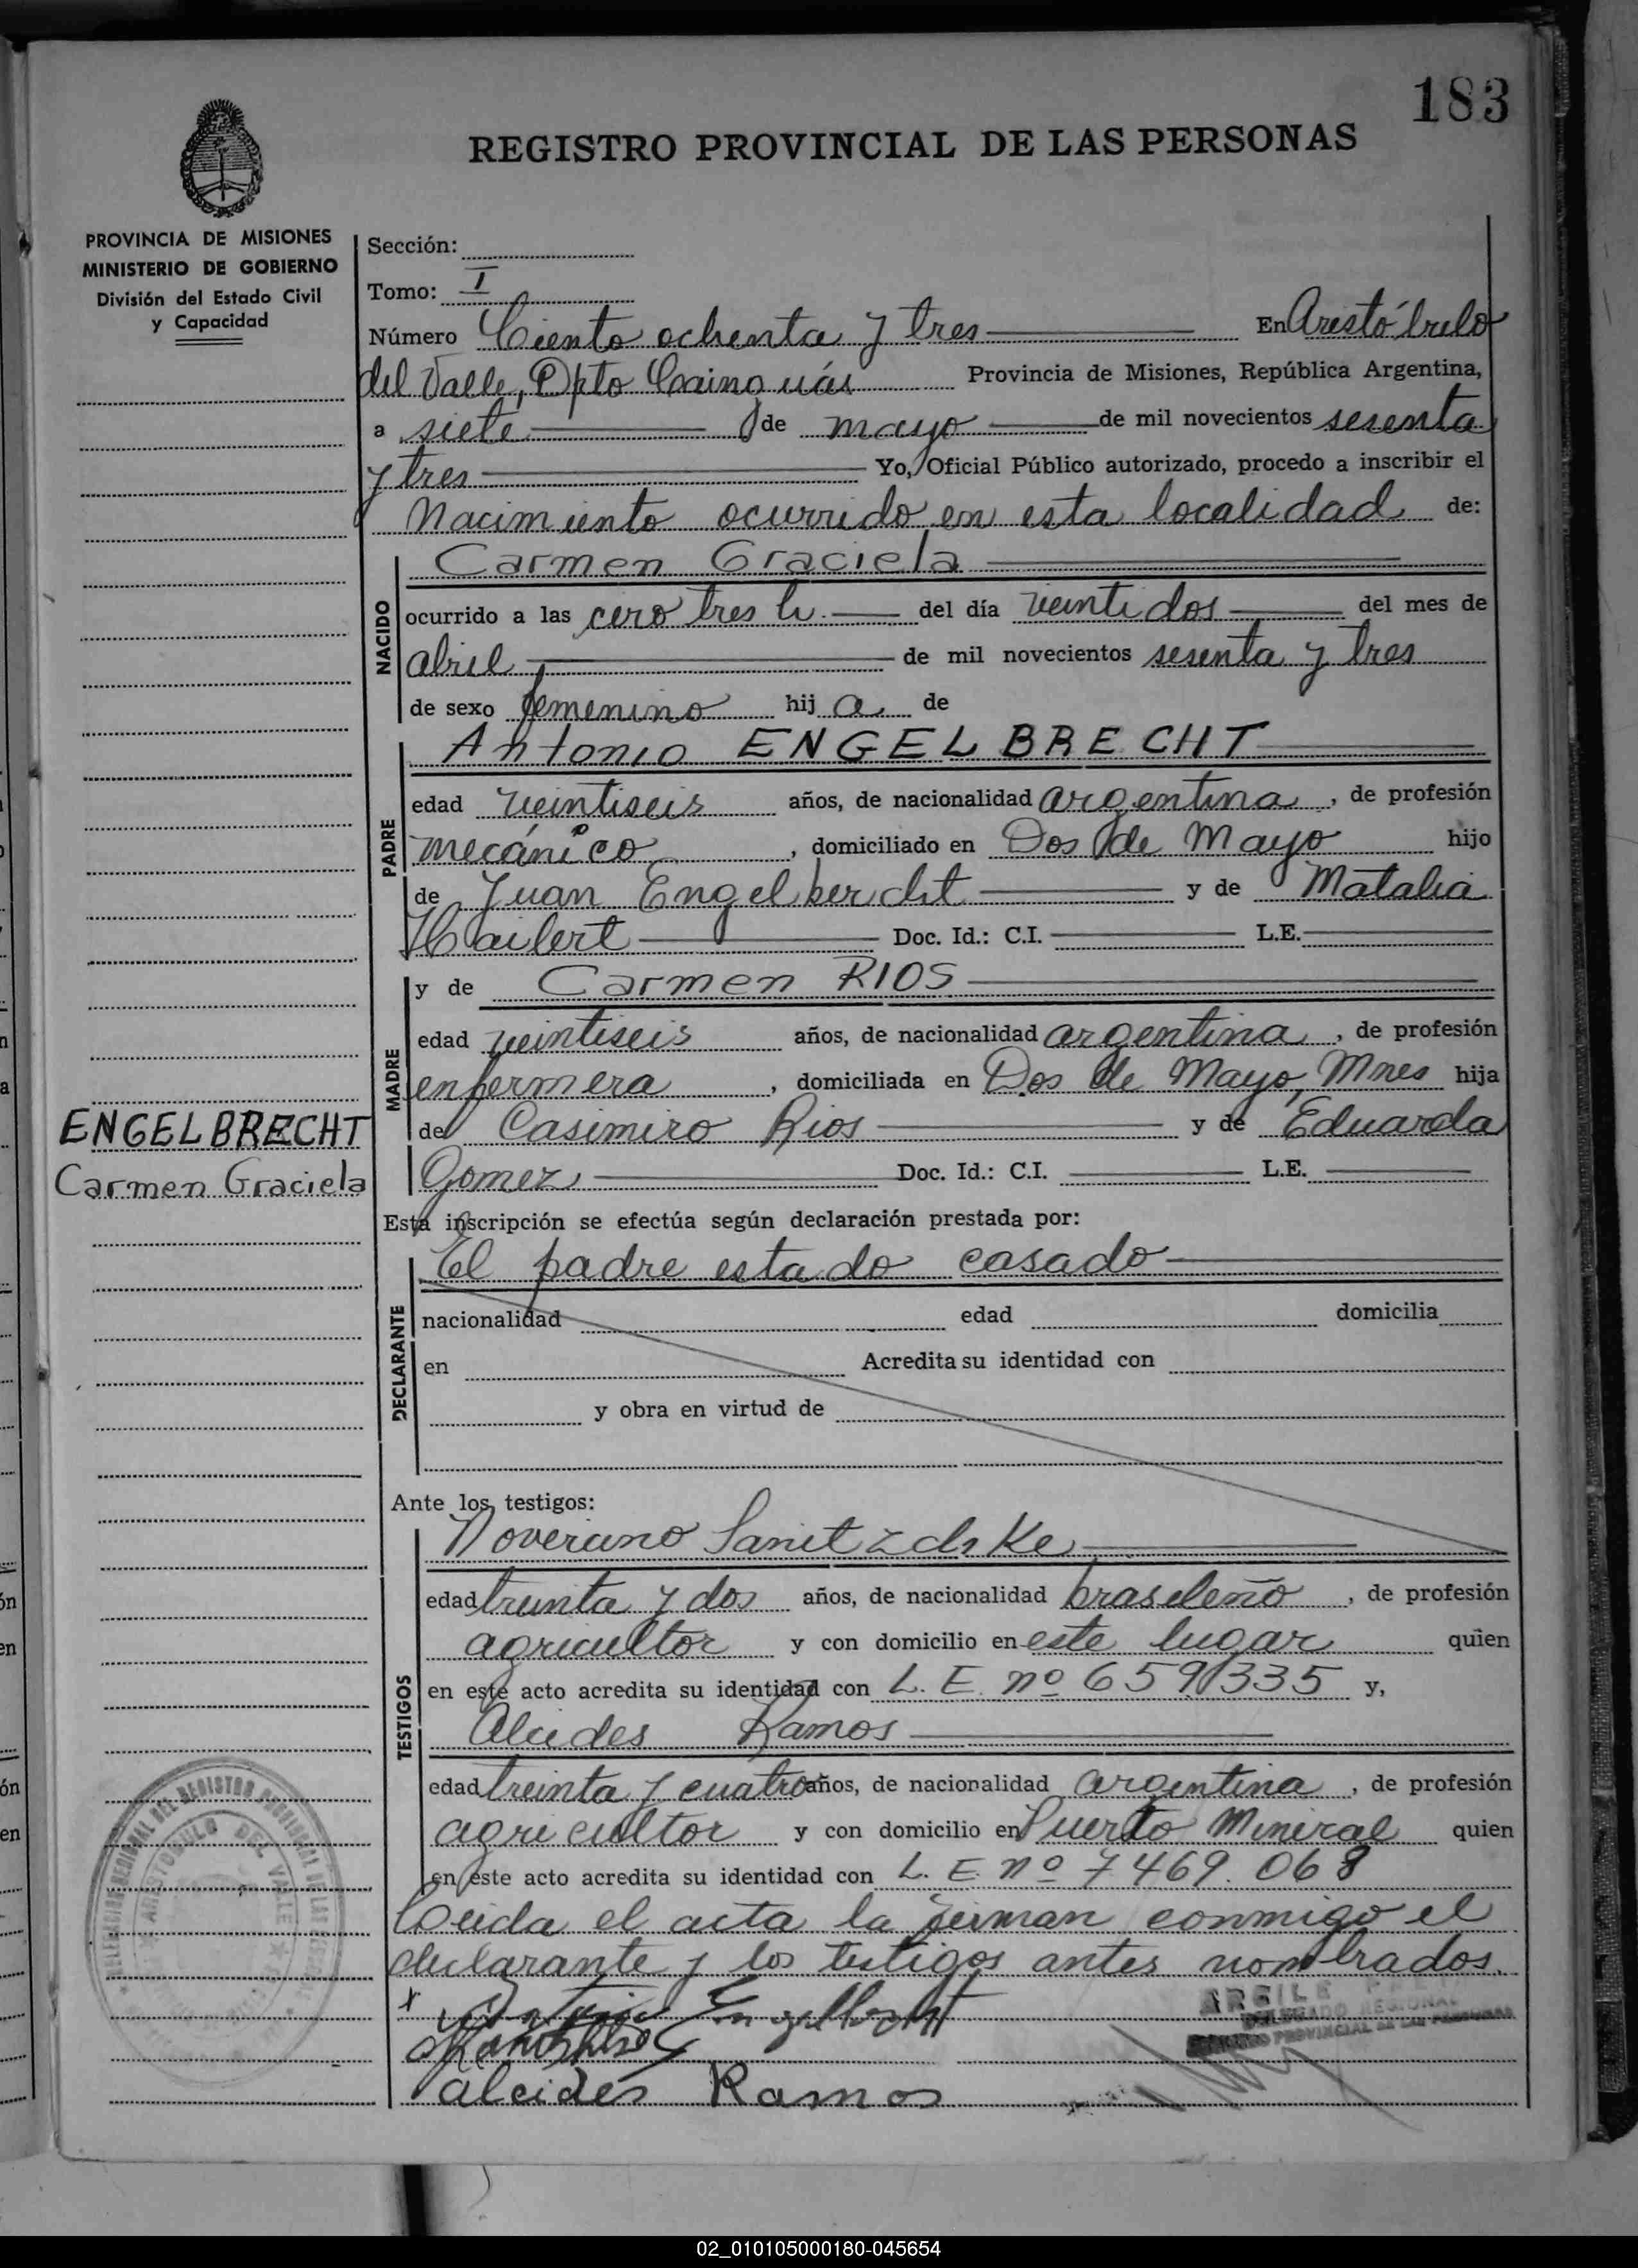 183
REGISTRO PROVINCIAL DE LAS PERSONAS
PROVINCIA DE MISIONES
MINISTERIO DE GOBIERNO
División del Estado Civil
y Capacidad
Sección:
Tomo: I
Número Ciento ochenta y tres En Aristóbulo
del Valle, Dpto Cainguás Provincia de Misiones, República Argentina,
a siete de mayo de mil novecientos sesenta
y tres Yo, Oficial Público autorizado, procedo a inscribir el
Nacimiento ocurrido en esta localidad de:
NACIDO
Carmen Graciela
ocurrido a las cero tres h. del día veintidos del mes de
abril de mil novecientos sesenta y tres
de sexo femenino hij a de
PADRE
Antonio ENGELBRECHT
edad veintiseis años, de nacionalidad argentina, de profesión
mecánico, domiciliado en Dos de Mayo hijo
de Juan Engelbercht y de Matalia
Hailert Doc. Id.: C.I. L.E.
MADRE
y de Carmen RIOS
edad veintiseis años, de nacionalidad argentina, de profesión
enfermera, domiciliada en Dos de Mayo, Mnes hija
de Casimiro Rios y de Eduarda
Gomez Doc. Id.: C.I. L.E.
ENGELBRECHT
Carmen Graciela
Esta inscripción se efectúa según declaración prestada por:
DECLARANTE
El padre estado casado
nacionalidad edad domicilia
en Acredita su identidad con
y obra en virtud de
Ante los testigos:
TESTIGOS
edad treinta y dos años, de nacionalidad brasileño, de profesión
agricultor y con domicilio en este lugar quien
en este acto acredita su identidad con L. E. nº 6591335 y,
Alcides Ramos
edad treinta y cuatro años, de nacionalidad argentina, de profesión
agricultor y con domicilio en Puerto Mineral quien
en este acto acredita su identidad con L. E. nº 7469.068
Leida el acta la firman conmigo el
declarante y los testigos antes nombrados.
x Antonio Engelbrecht
DELEGADO REGIONAL
REGISTRO PROVINCIAL DE LAS PERSONAS
alcides Ramos
02_010105000180-045654